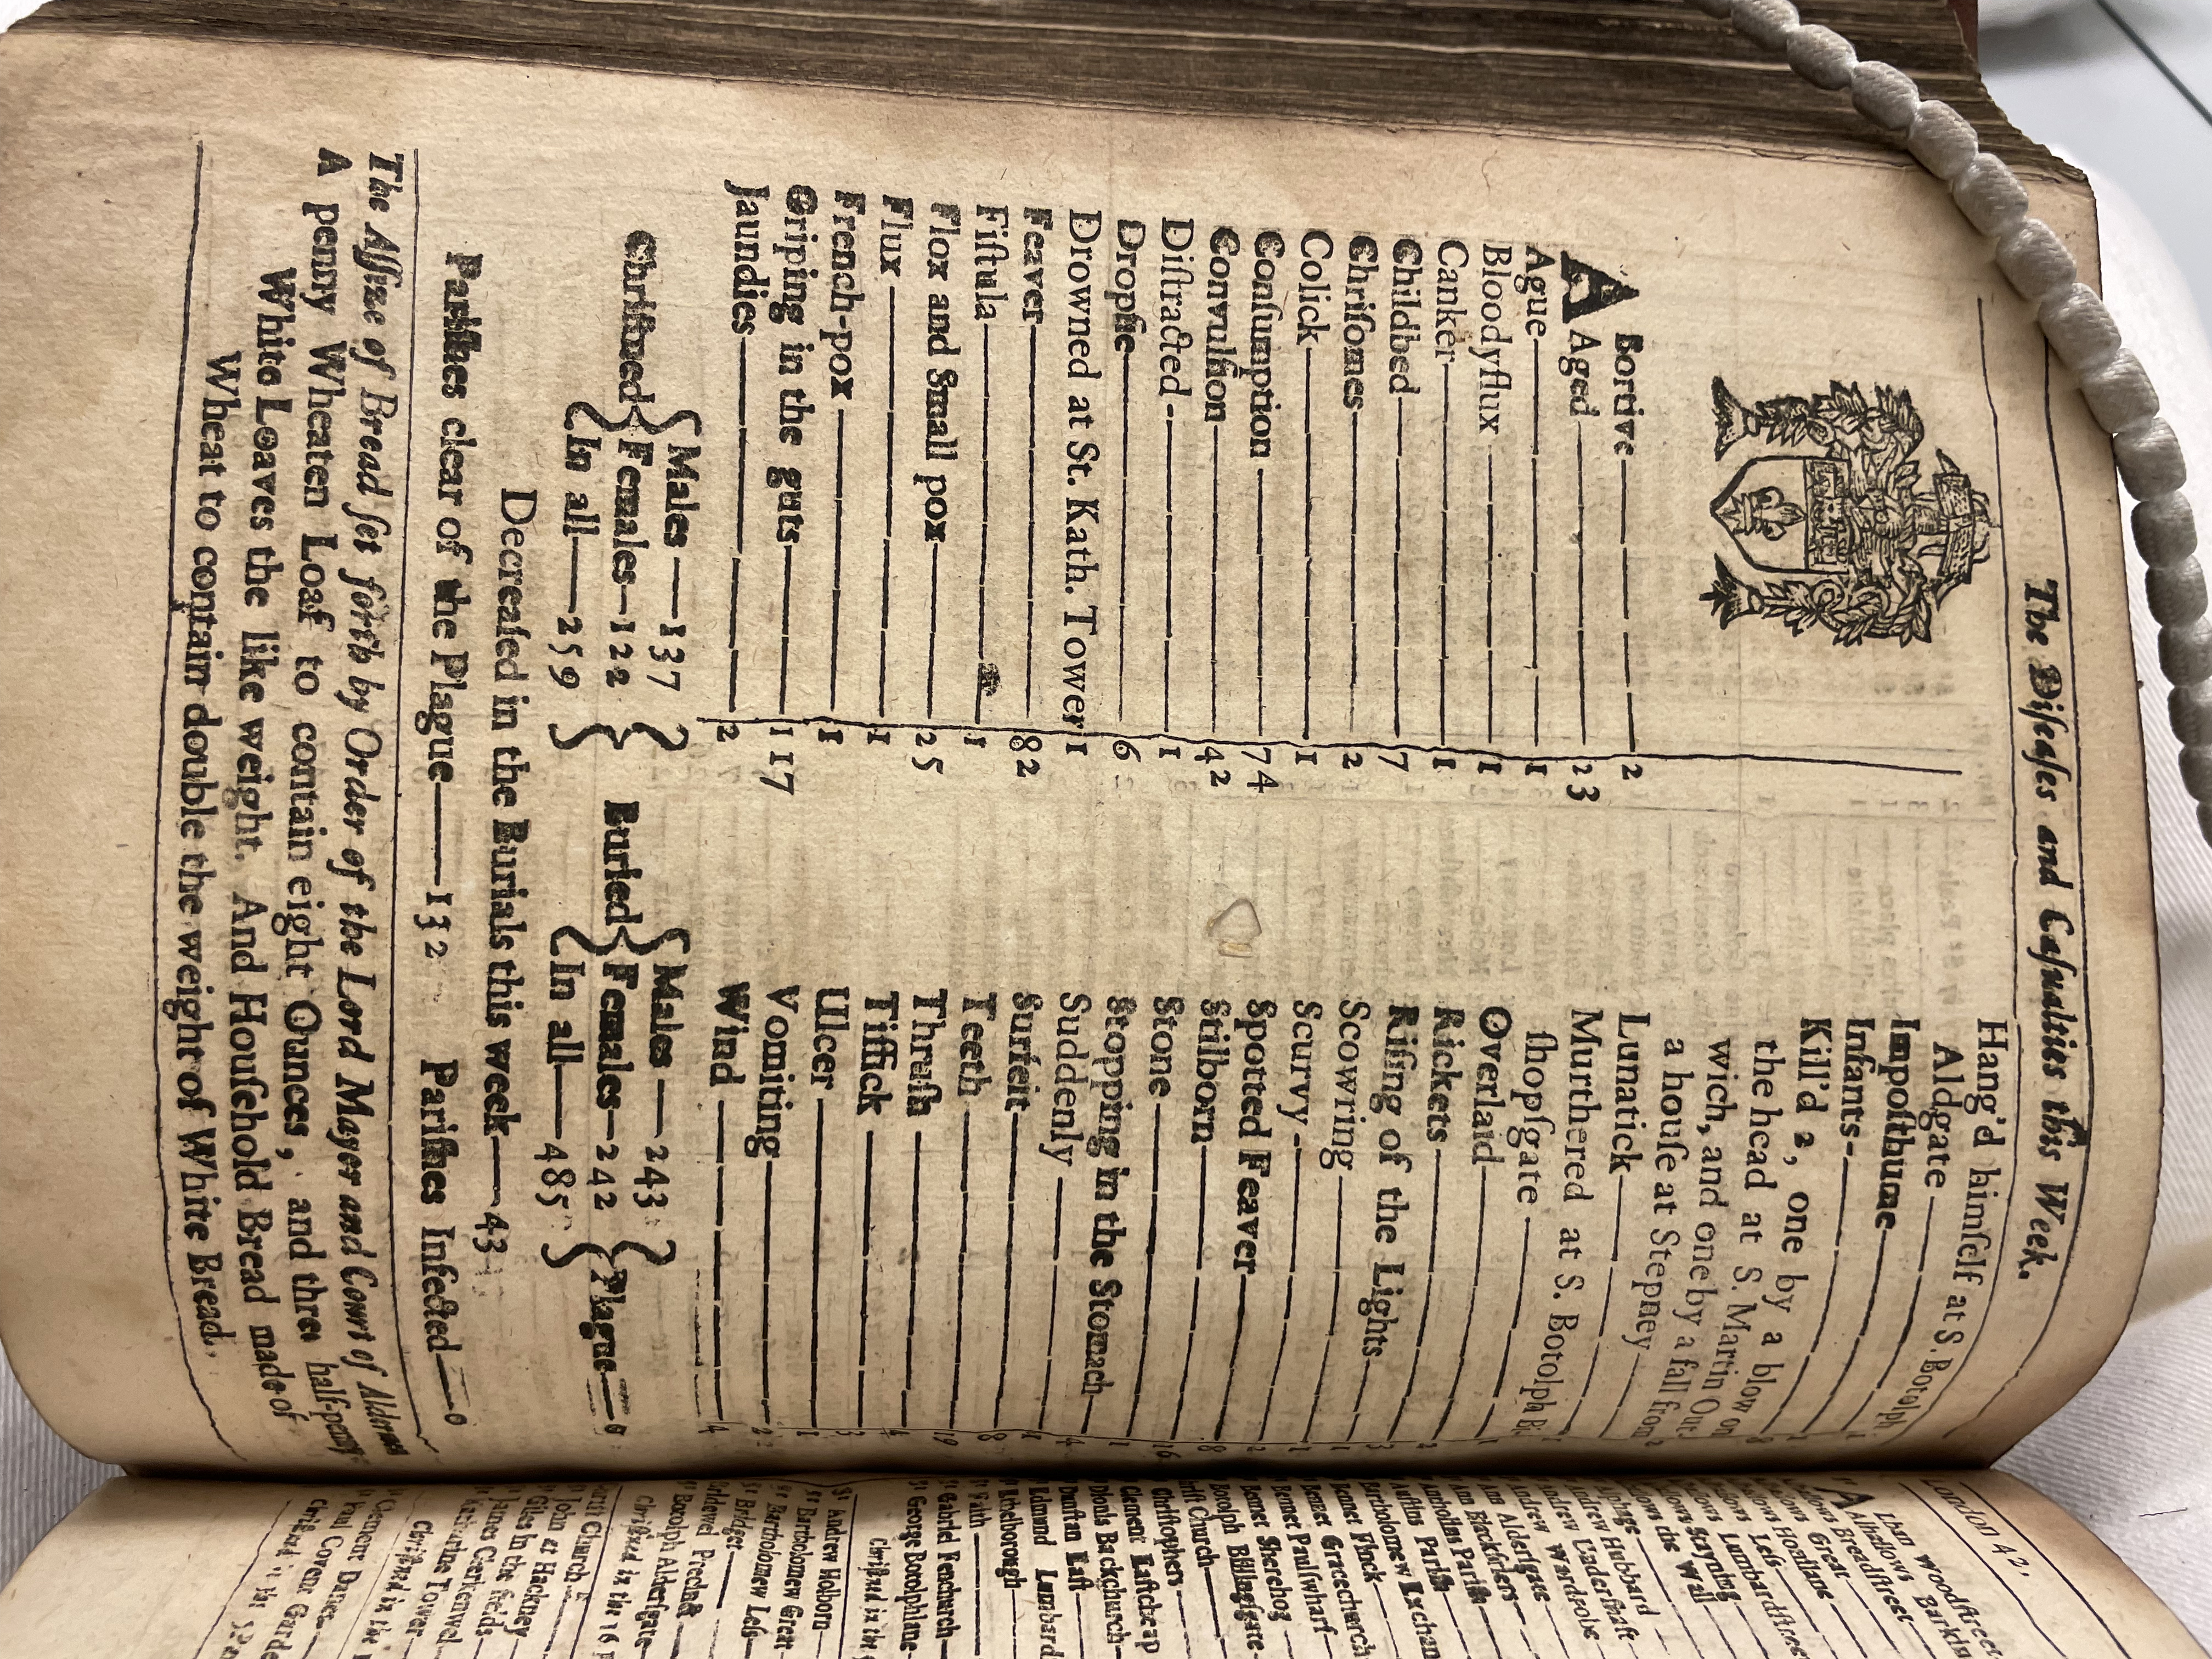 The Diſeaſes and Caſualties this Week.
ABortive 2
Aged 23
Ague 1
Bloodyflux 1
Canker 1
Childbed 7
Chriſomes 2
Colick 1
Conſumption 74
Convulſion 42
Diſtracted 1
Dropſie 6
Drowned at St. Kath. Tower 1
Feaver 82
Fiſtula 1
Flox and Small pox 25
Flux 1
French-pox 1
Griping in the guts 117
Jaundies 2
Hang'd himſelf at S. Botolph
Aldgate
Impoſthume
Infants
Kill'd 2, one by a blow on
the head at S. Martin Out-
wich, and one by a fall from
a houſe at Stepney 2
Lunatick
Murthered at S. Botolph Bi
ſhopſgate
Overlaid 1
Rickets 2
Riſing of the Lights 3
Scowring 1
Scurvy 1
Spotted Feaver 2
Stilborn 8
Stone
Stopping in the Stomach
Suddenly
Surfeit
Teeth
Thruſh 4
Tiſſick 3
Ulcer 1
Vomiting 2
Wind 4
Chriſtned { Males 137 Females 122 In all 259 }
Buried { Males 243 Females 242 In all 485 } Plague 0
Decreaſed in the Burials this week 43
Pariſhes clear of the Plague 132 Pariſhes Infected 0
The Aſſize of Bread ſet forth by Order of the Lord Mayor and Court of Aldermen
A penny Wheaten Loaf to contain eight Ounces, and three half-penny
White Loaves the like weight. And Houſehold Bread made of
Wheat to contain double the weight of White Bread.
London 42,
Alban Woodſtreet
Alhallows Barkin
Breadſtreet
Great
Honilane
Leſs
Lumbardſtreet
Stayning
the Wall
Alphage
Andrew Hubbard
Andrew Underſhaft
Andrew Wardrobe
Ann Alderſgate
Ann Blackfriers
Antholins Pariſh
Auſtins Pariſh
Bartholomew Exchan
Bennet Fynck
Bennet Gracechurch
Bennet Paulſwharf
Bennet Sherehog
Botolph Billingſgate
Chriſt Church
Chriſtophers
Clement Eaſtcheap
Dionis Backchurch
Dunſtan Eaſt
Edmund Lumbard
Ethelborough
Faith
Gabriel Fenchurch
George Botolphlane
Chriſtned in the
St Andrew Holborn
St Bartholomew Great
St Bartholomew Leſs
St Bridget
Bridewel Precinct
St Botolph Alderſgate
Chriſtned in the 16 p
Chriſt Church
John at Hackney
Giles in the fields
James Clerkenwel
Katharine Tower
Chriſtned in the
Clement Danes
Paul Covent Garden
Chriſtned in the